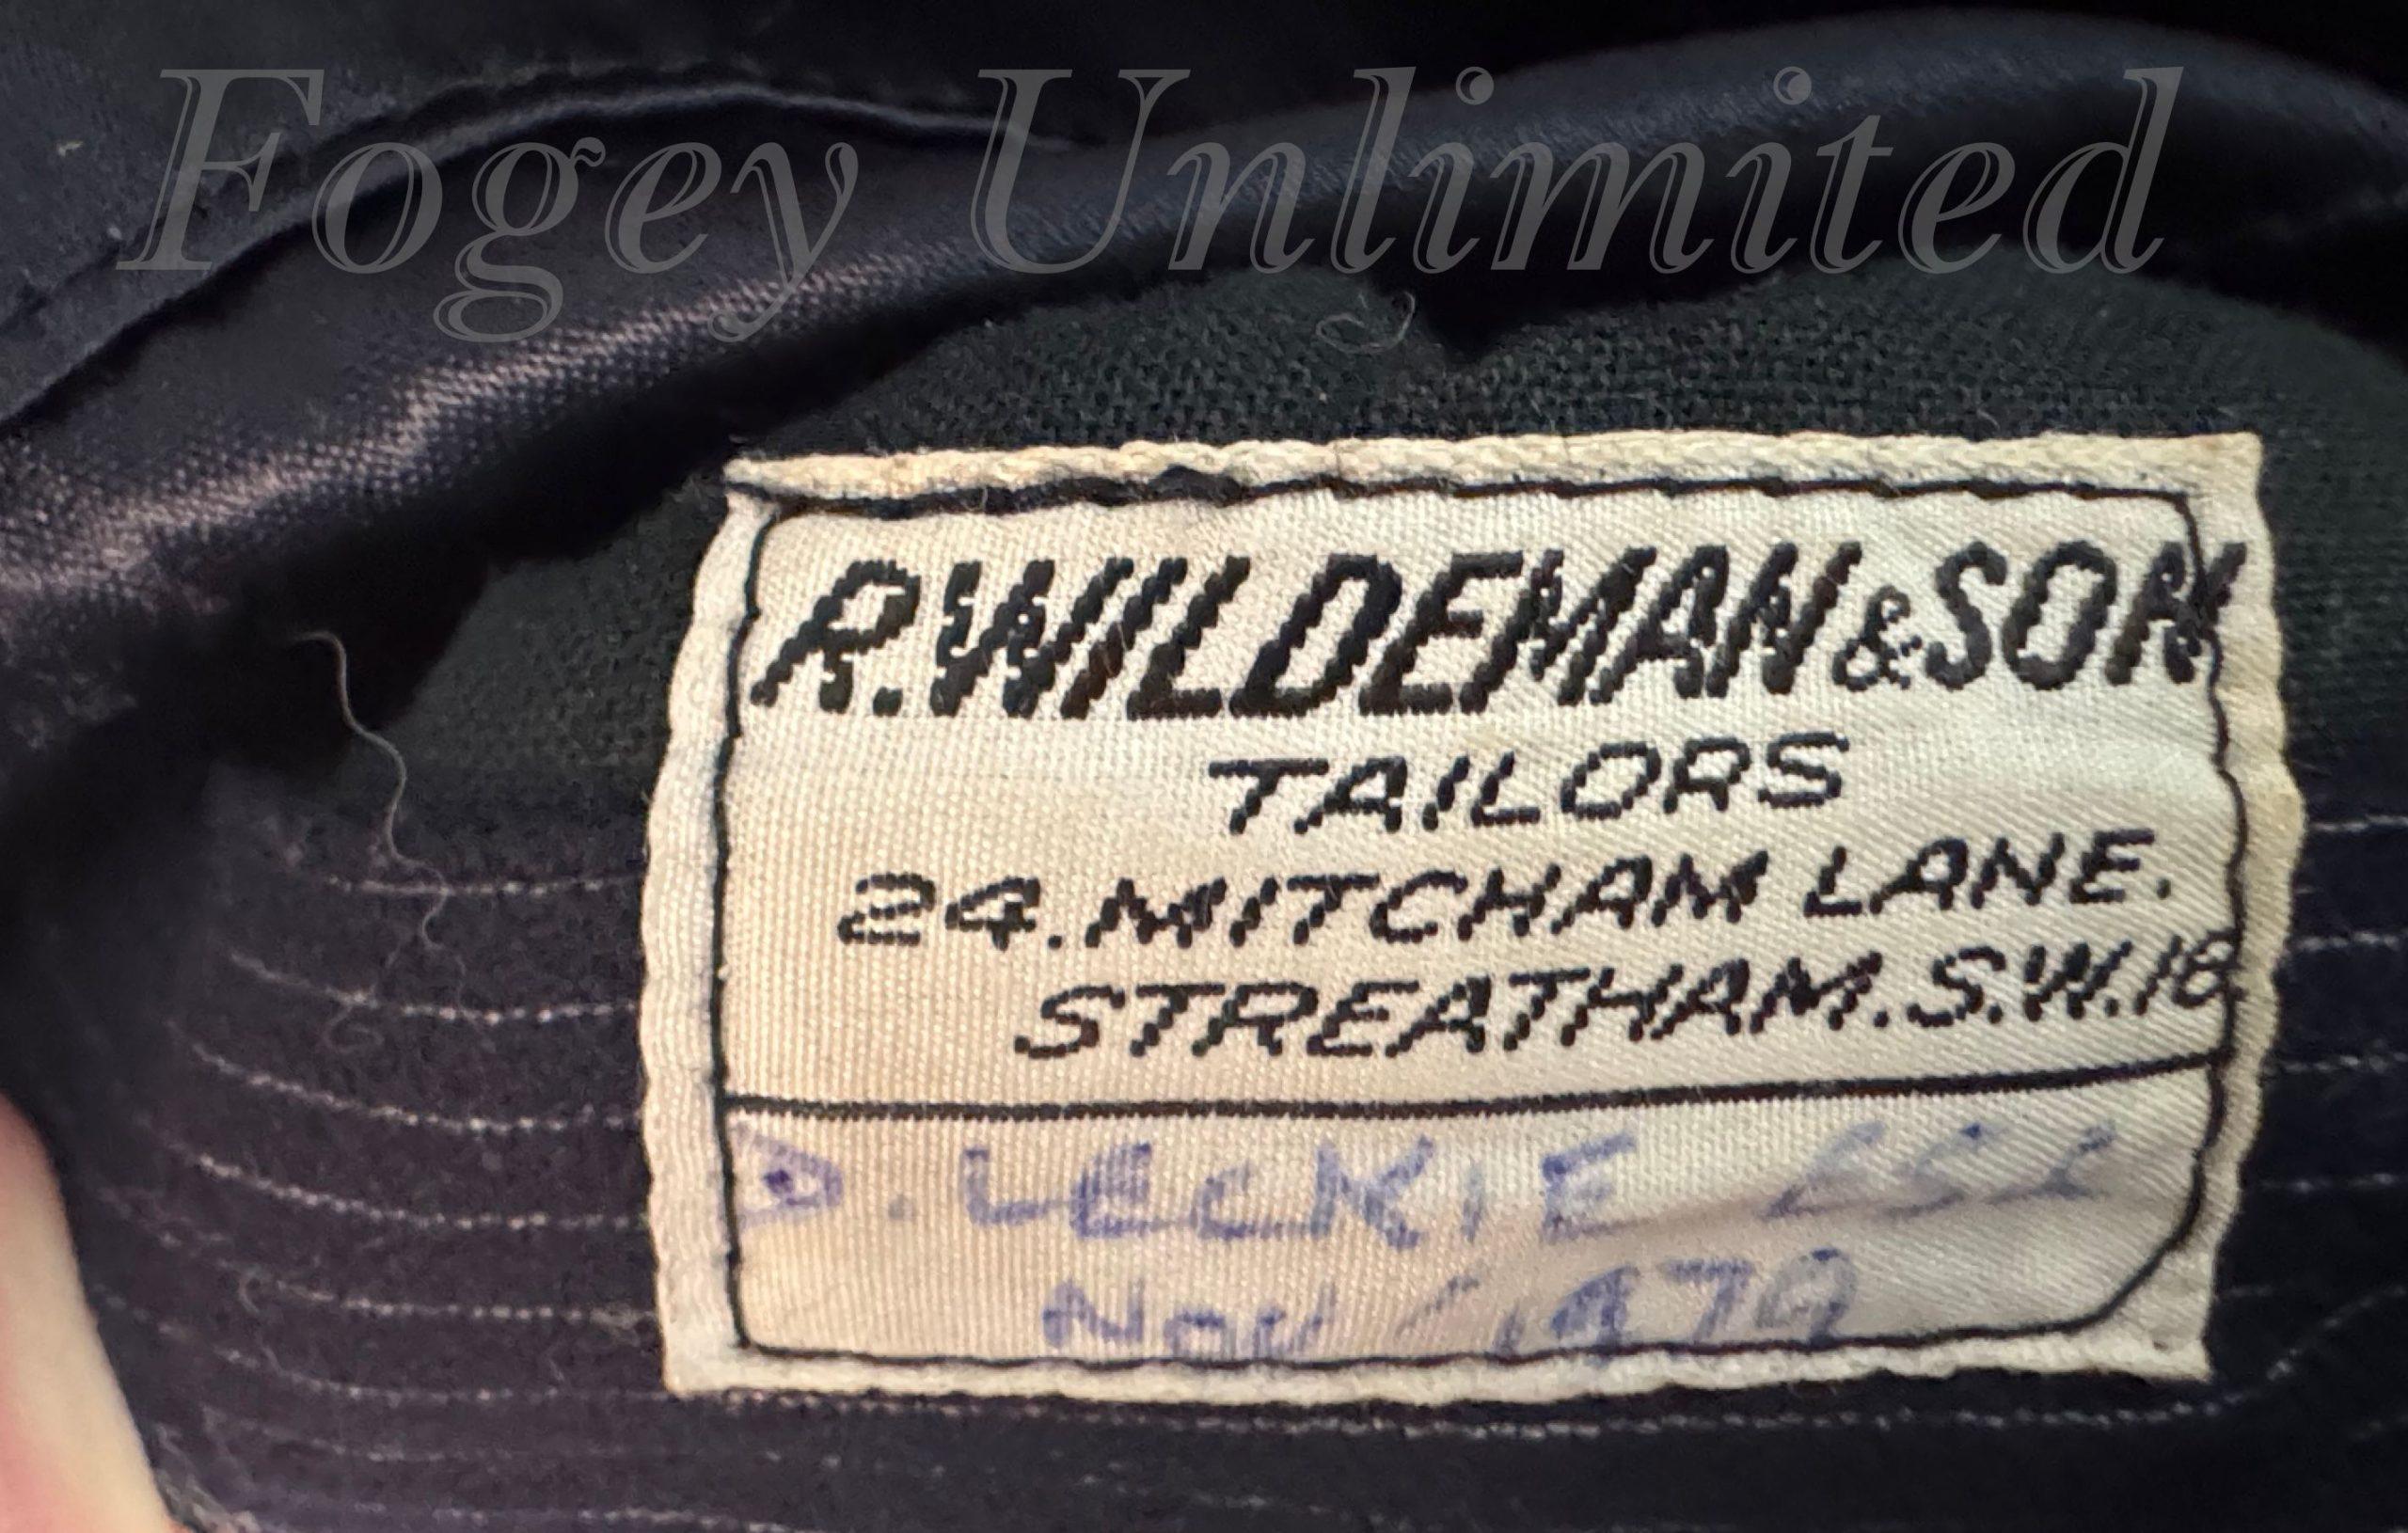 Fogey Unlimited
R.WILDEMAN & SON
TAILORS
24.MITCHAM LANE.
STREATHAM.S.W.16.
D. LECKIE
Nov 1979